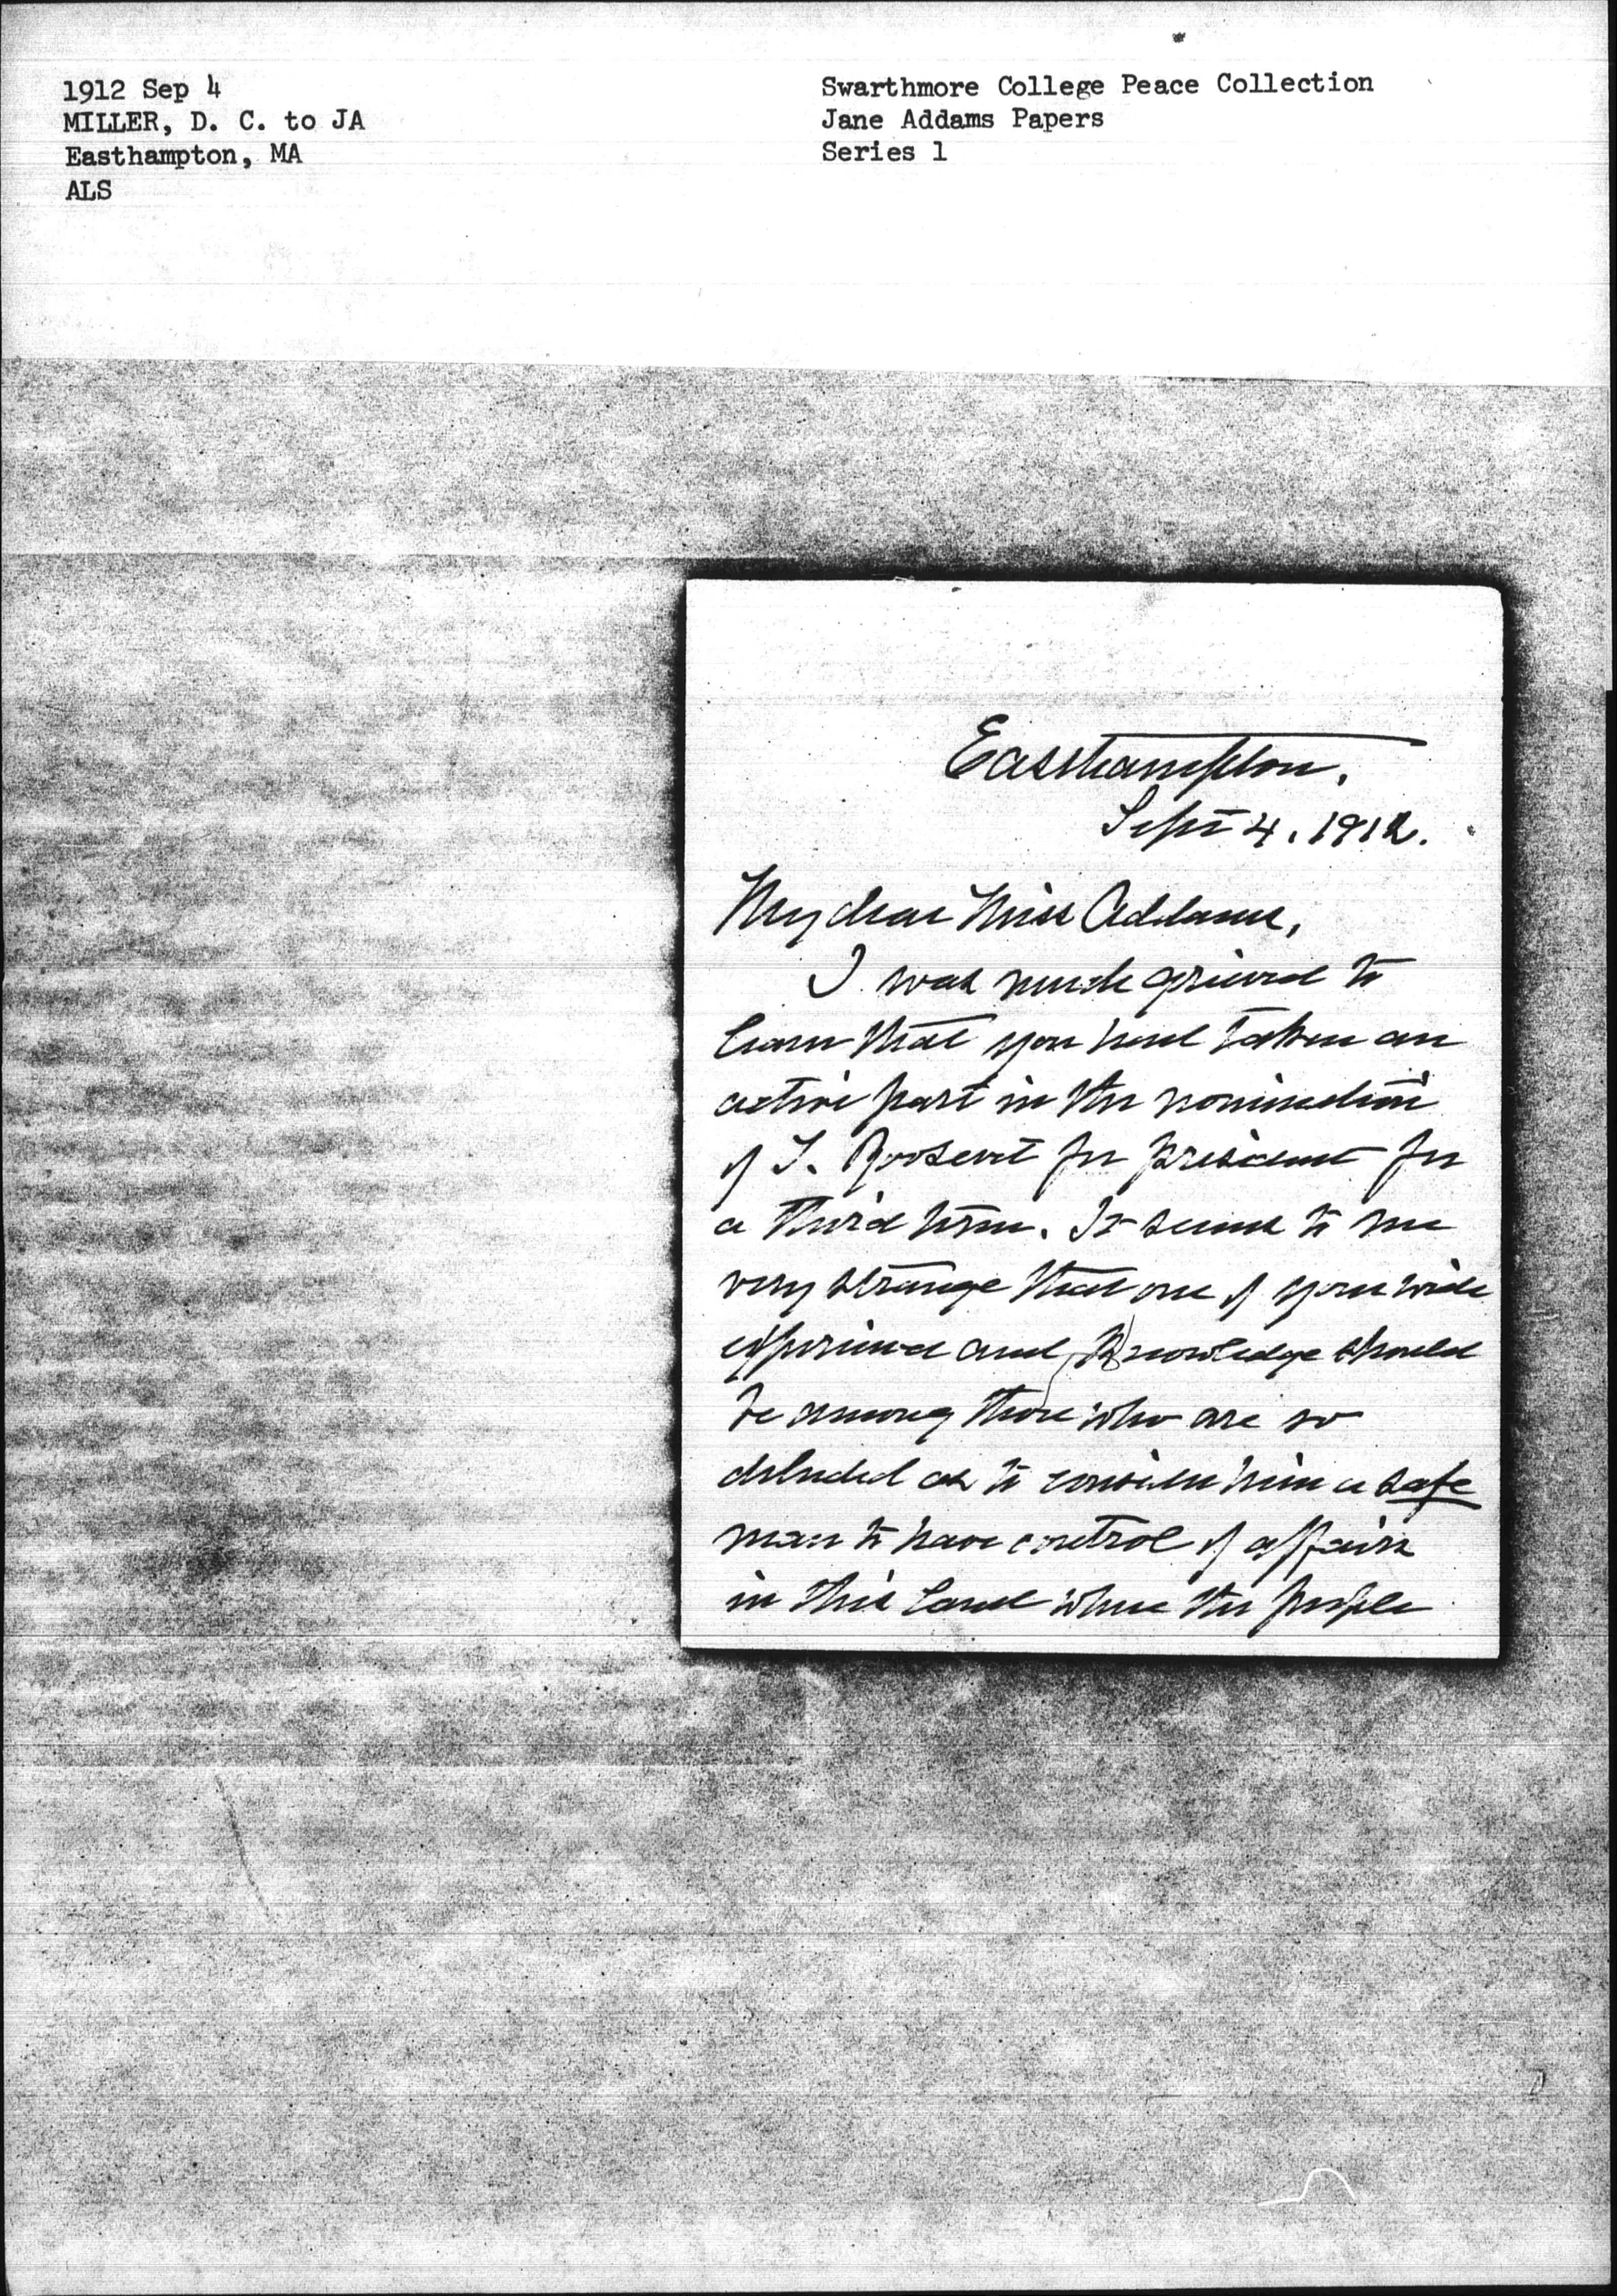 1912 Sep 4
MILLER, D. C. to JA
Easthampton, MA
ALS
Swarthmore College Peace Collection
Jane Addams Papers
Series 1
Easthampton,
Sept 4, 1912.
My dear Miss Addams,
I was much grieved to
learn that you had taken an
active part in the nomination
of T. Roosevelt for president for
a third term. It seems to me
very strange that one of your wide
experience and knowledge should
be among those who are so
deluded as to consider him a safe
man to have control of affairs
in this land where the people